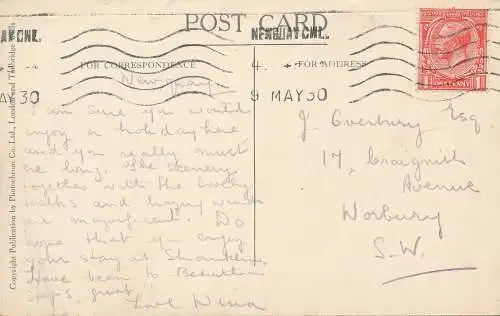 POST CARD
FOR CORRESPONDENCE
FOR ADDRESS
NEWQUAY CNL.
9 MAY 30
MAY 30
ONE PENNY
Newquay
I am sure you would
enjoy a holiday here
and you really must
The scenery
together with the lovely
walks and
are magnificent. Do
hope that you enjoy
your stay at
Have been to
steps, great
Love Nina
J. Overbury Esq.
17, Craignish
Avenue
Norbury
S.W.
Copyright Publication by Photochrom Co. Ltd., London and Tunbridge